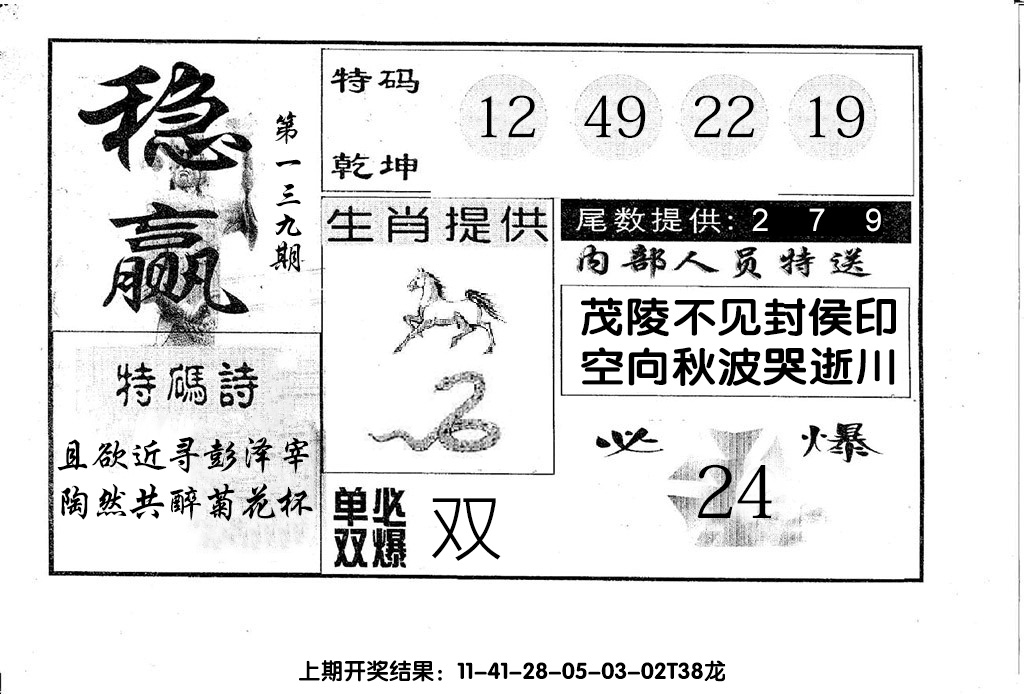 稳赢
第一三九期
特码诗
且欲近寻彭泽宰
陶然共醉菊花杯
特码
乾坤
12 49 22 19
生肖提供
单双
必爆
双
尾数提供: 2 7 9
内部人员特送
茂陵不见封侯印
空向秋波哭逝川
必爆
24
上期开奖结果：11-41-28-05-03-02T38龙